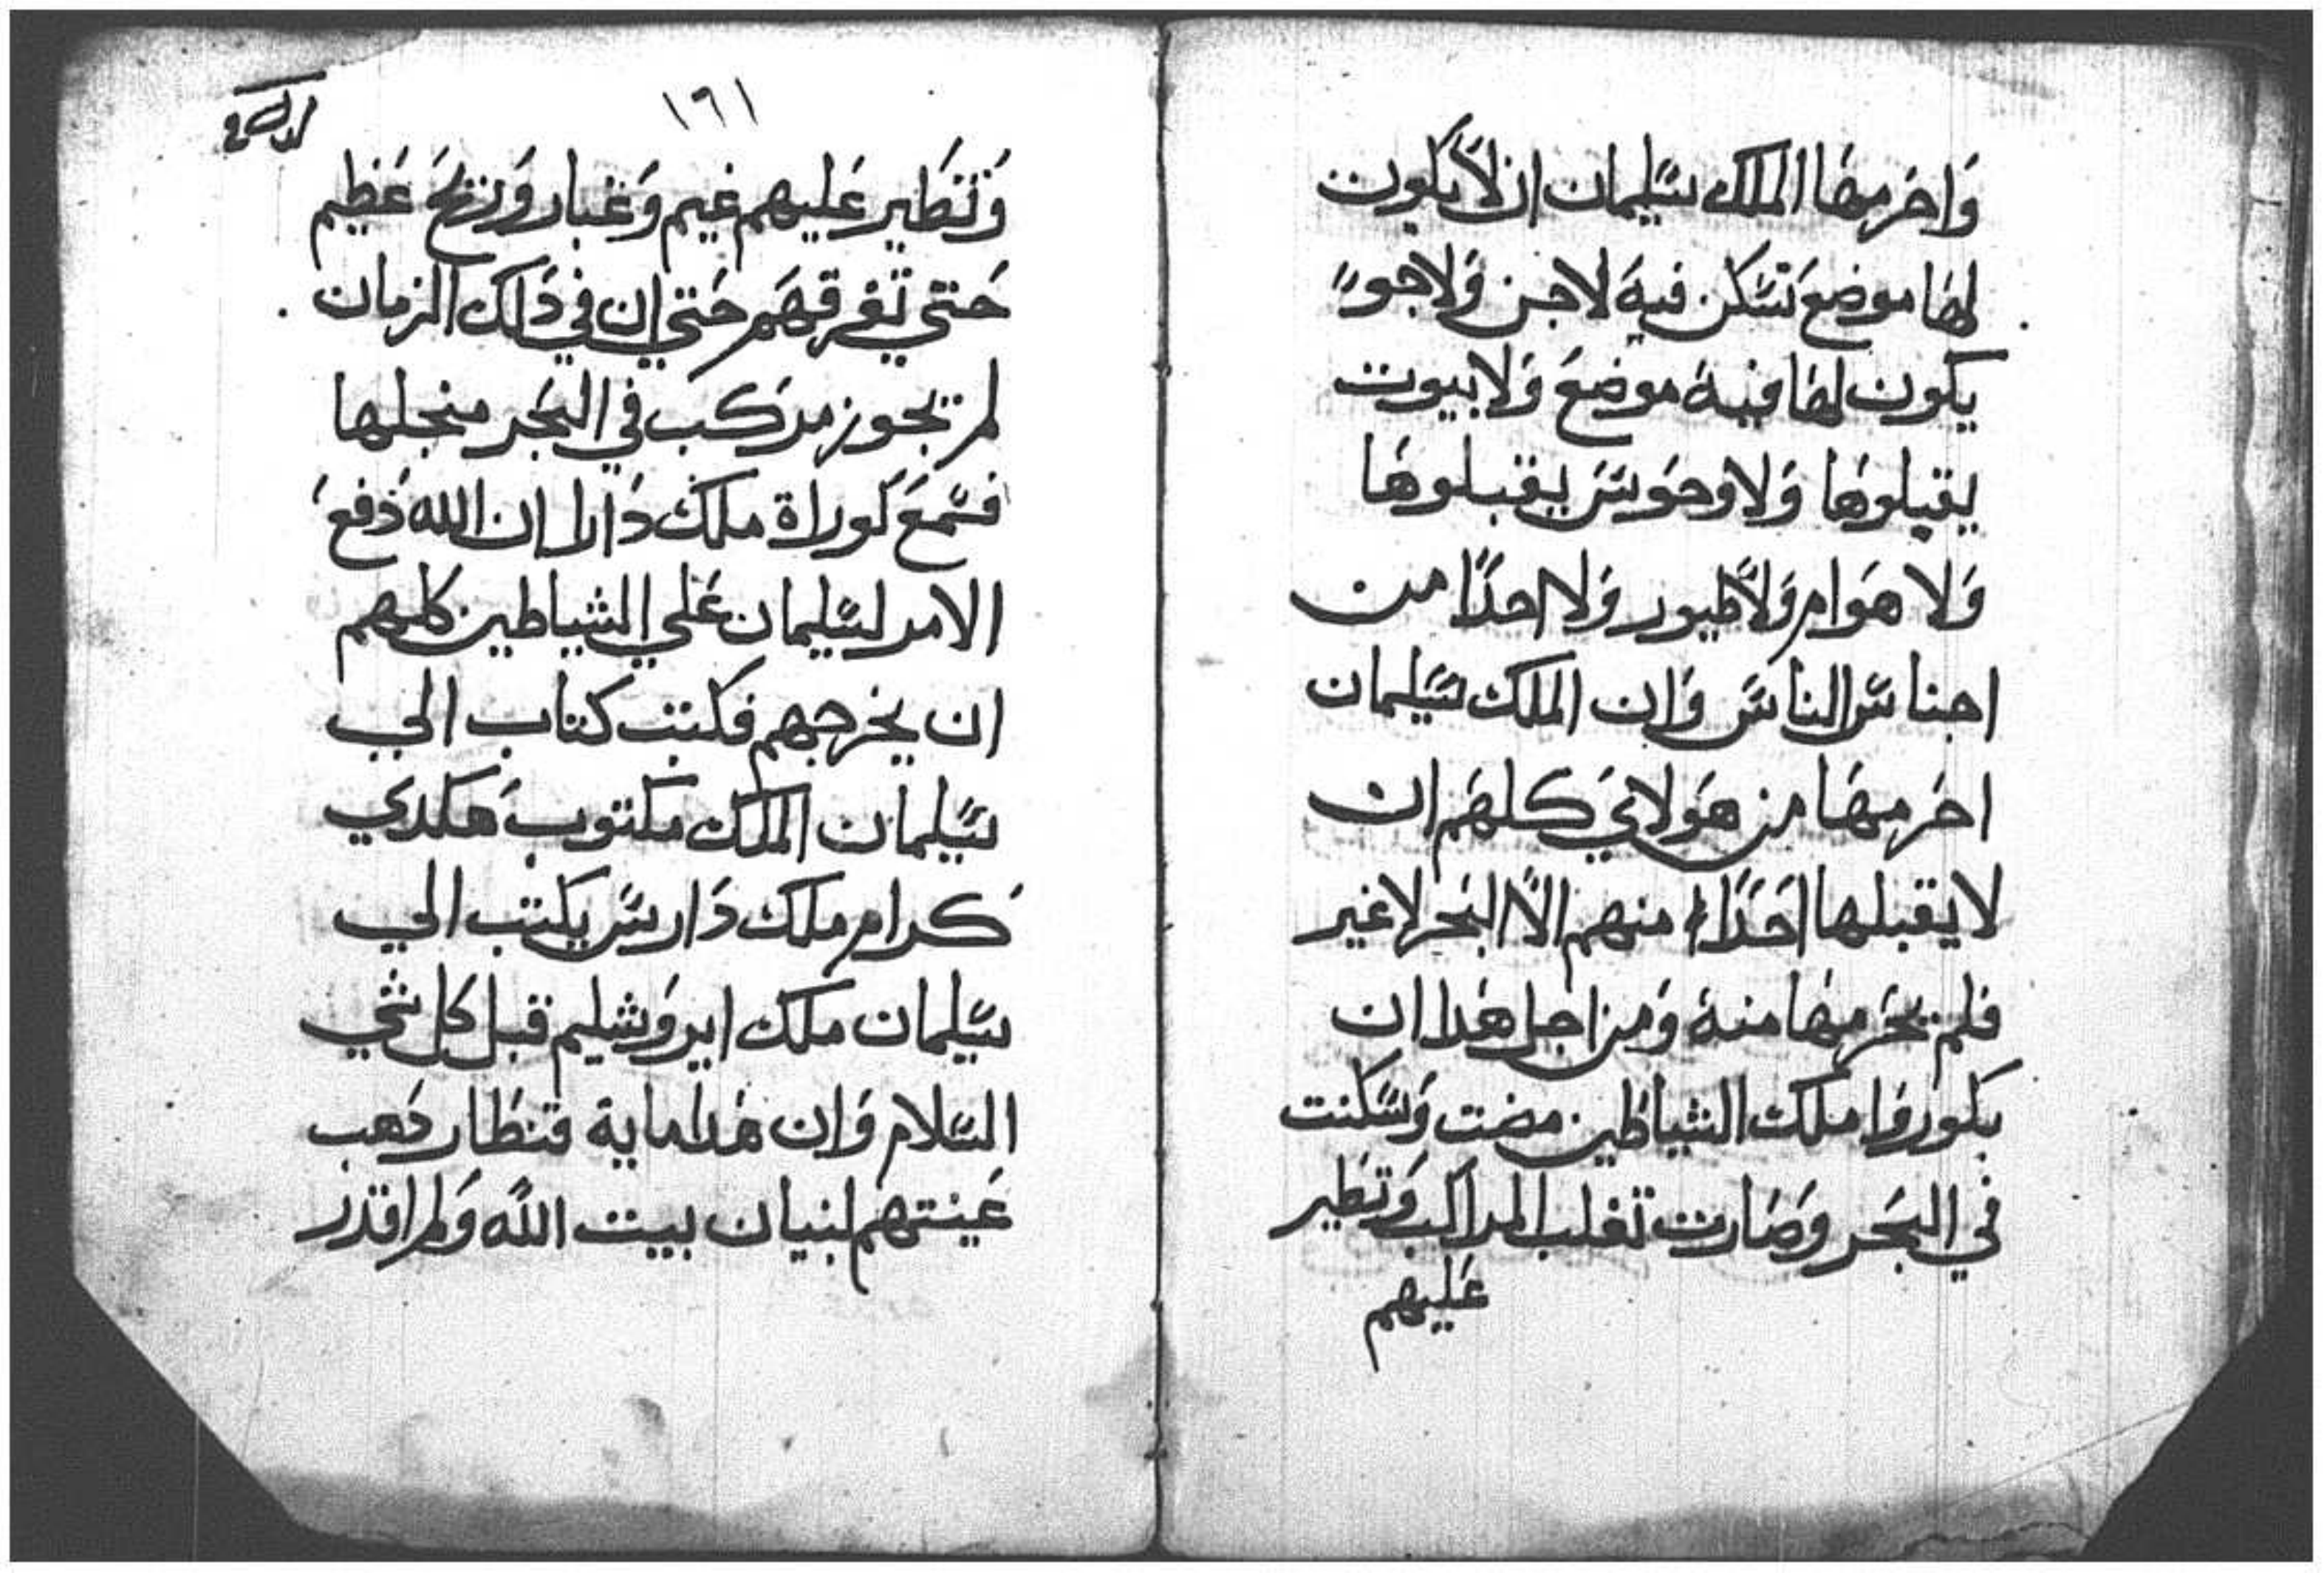 وَاحَرمهَا الملك سَليمان ان لا يكون
لهَا موضع تسَكن فيه لا جن وَلا جوا
يكون لهَا فيه موضعَ وَلا بيوت
يقبلوهَا وَلا وحوَش يقبلوهَا
وَلا هوَام وَلا طيور وَلا احدًا من
اجناسَ الناسَ وَان الملك سَليمان
احرمهَا من هَولاي كلهَم ان
لا يقبلها احَدًا منهم الا البَحر لا غير
فلم يحَرمهَا منه وَمن اجل هَدا ان
بكوروا ملك الشياطين مضت وَسَكنت
في البَحر وَصَارت تغلب المراكب وَتطير
عَليهم
١٦١
وَتطَير عَليهم غيم وَغبار وَريَح عَظيم
حَتي تغرقهَم حَتي ان في دَلك الزمان
لم يجوز مركب في البَحر منجلها
فسَمعَ كوراة ملك دَارا ان الله دَفعَ
الامر لسَليمان عَلي الشياطين كلهم
ان يخرجهم فكتب كتاب الي
سَليمان الملك مكتوب هَكدي
كرام ملك دَارسَ يكتب الي
سَليمان ملك ايروَشليم قبل كل شي
السَلام وَان هَدا ماية قنطَار دَهب
عَينتهم لبنيان بيت الله وَلم اقدر